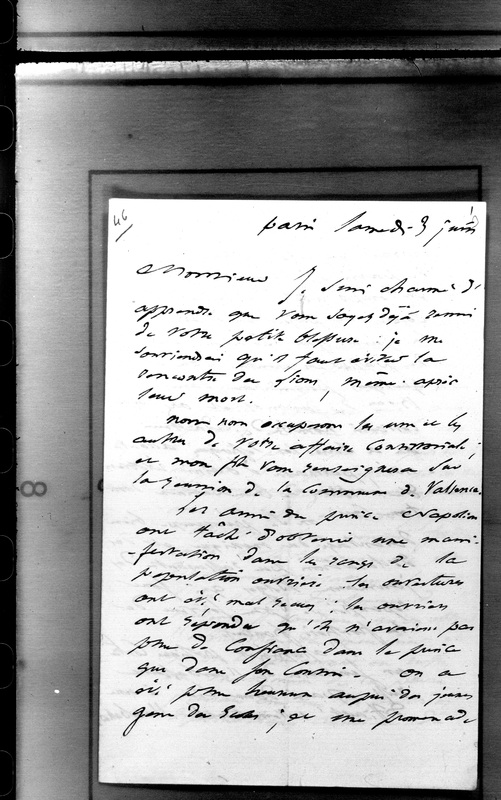 46
paris samedi 3 juin
Monsieur Je suis charmé d'
apprendre que vous soyez déjà remis
de votre petite blessure : je me
souviendrai qu'il faut éviter la
rencontre des lions, même après
leur mort.
nous nous occupons les uns et les
autres de votre affaire
et mon fils vous renseignera sur
la réunion de la commune de
Les amis du prince Napoléon
ont tâché d'obtenir une mani-
-festation dans les rangs de la
population ouvrière. les ouvertures
ont été mal reçues ; les ouvriers
ont répondu qu'ils n'avaient pas
plus de confiance dans le prince
que dans son Cousin. on a
été plus heureux auprès des jeunes
gens des Ecoles ; et une promenade
8